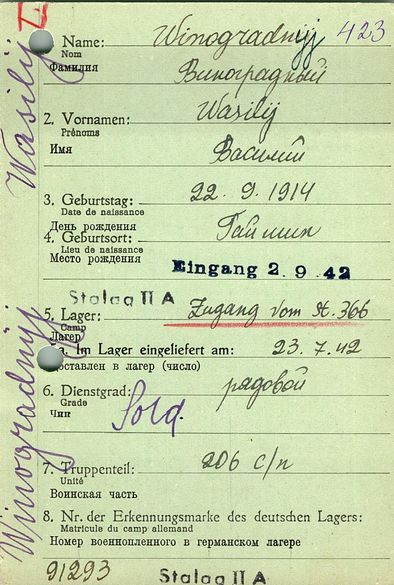 Name: Winogradnyj 423
Nom
Фамилия Виноградный
2. Vornamen: Wasilij
Prénoms
Имя Василий
3. Geburtstag: 22.9.1914
Date de naissance
День рождения
4. Geburtsort:
Lieu de naissance
Место рождения
Eingang 2.9.42
Stalag II A
5. Lager: Zugang vom St. 366
Camp
Лагерь
a. Im Lager eingeliefert am: 23.7.42
Доставлен в лагер (число)
6. Dienstgrad: рядовой
Grade
Чин Sold.
7. Truppenteil: 206 с/п
Unité
Воинская часть
8. Nr. der Erkennungsmarke des deutschen Lagers:
Matricule du camp allemand
Номер военнопленного в германском лагере
91293 Stalag II A
Winogradnyj Wasilij